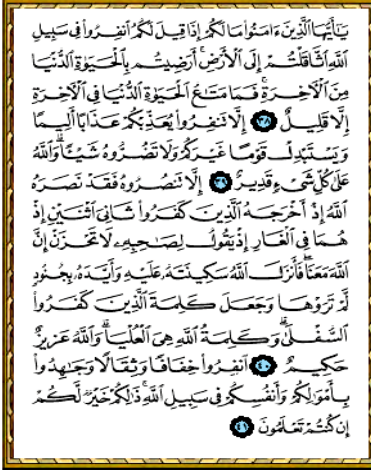 يَٰٓأَيُّهَا ٱلَّذِينَ ءَامَنُوا۟ مَا لَكُمْ إِذَا قِيلَ لَكُمُ ٱنفِرُوا۟ فِى سَبِيلِ
ٱللَّهِ ٱثَّاقَلْتُمْ إِلَى ٱلْأَرْضِ ۚ أَرَضِيتُم بِٱلْحَيَوٰةِ ٱلدُّنْيَا
مِنَ ٱلْءَاخِرَةِ ۚ فَمَا مَتَٰعُ ٱلْحَيَوٰةِ ٱلدُّنْيَا فِى ٱلْءَاخِرَةِ
إِلَّا قَلِيلٌ ٣٨ إِلَّا تَنفِرُوا۟ يُعَذِّبْكُمْ عَذَابًا أَلِيمًا
وَيَسْتَبْدِلْ قَوْمًا غَيْرَكُمْ وَلَا تَضُرُّوهُ شَيْـًٔا ۗ وَٱللَّهُ
عَلَىٰ كُلِّ شَىْءٍ قَدِيرٌ ٣٩ إِلَّا تَنصُرُوهُ فَقَدْ نَصَرَهُ
ٱللَّهُ إِذْ أَخْرَجَهُ ٱلَّذِينَ كَفَرُوا۟ ثَانِىَ ٱثْنَيْنِ إِذْ
هُمَا فِى ٱلْغَارِ إِذْ يَقُولُ لِصَٰحِبِهِۦ لَا تَحْزَنْ إِنَّ
ٱللَّهَ مَعَنَا ۖ فَأَنزَلَ ٱللَّهُ سَكِينَتَهُۥ عَلَيْهِ وَأَيَّدَهُۥ بِجُنُودٍ
لَّمْ تَرَوْهَا وَجَعَلَ كَلِمَةَ ٱلَّذِينَ كَفَرُوا۟
ٱلسُّفْلَىٰ ۗ وَكَلِمَةُ ٱللَّهِ هِىَ ٱلْعُلْيَا ۗ وَٱللَّهُ عَزِيزٌ
حَكِيمٌ ٤٠ ٱنفِرُوا۟ خِفَافًا وَثِقَالًا وَجَٰهِدُوا۟
بِأَمْوَٰلِكُمْ وَأَنفُسِكُمْ فِى سَبِيلِ ٱللَّهِ ۚ ذَٰلِكُمْ خَيْرٌ لَّكُمْ
إِن كُنتُمْ تَعْلَمُونَ ٤١